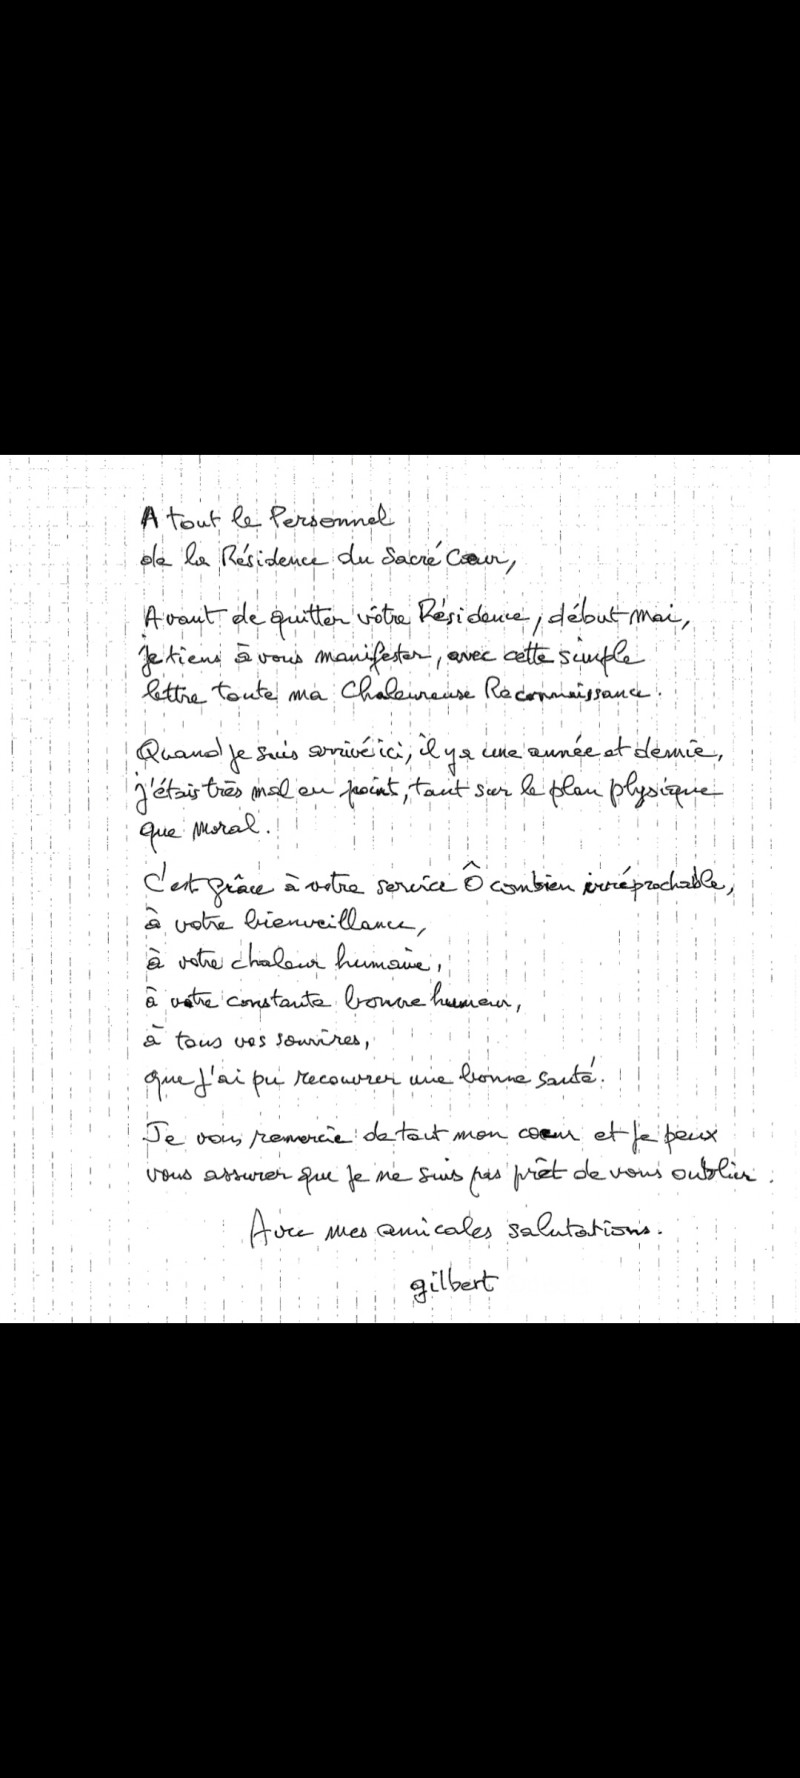 A tout le Personnel
de la Résidence du Sacré Cœur,
Avant de quitter vôtre Résidence, début mai,
je tiens à vous manifester, avec cette simple
lettre toute ma Chaleureuse Reconnaissance.
Quand je suis arrivé ici, il y a une année et demie,
j'étais très mal en point, tant sur le plan physique
que moral.
C'est grâce à votre service Ô combien irréprochable,
à votre bienveillance,
à votre chaleur humaine,
à votre constante bonne humeur,
à tous vos sourires,
que j'ai pu recouvrer une bonne santé.
Je vous remercie de tout mon cœur et je peux
vous assurer que je ne suis pas prêt de vous oublier.
Avec mes amicales salutations.
gilbert